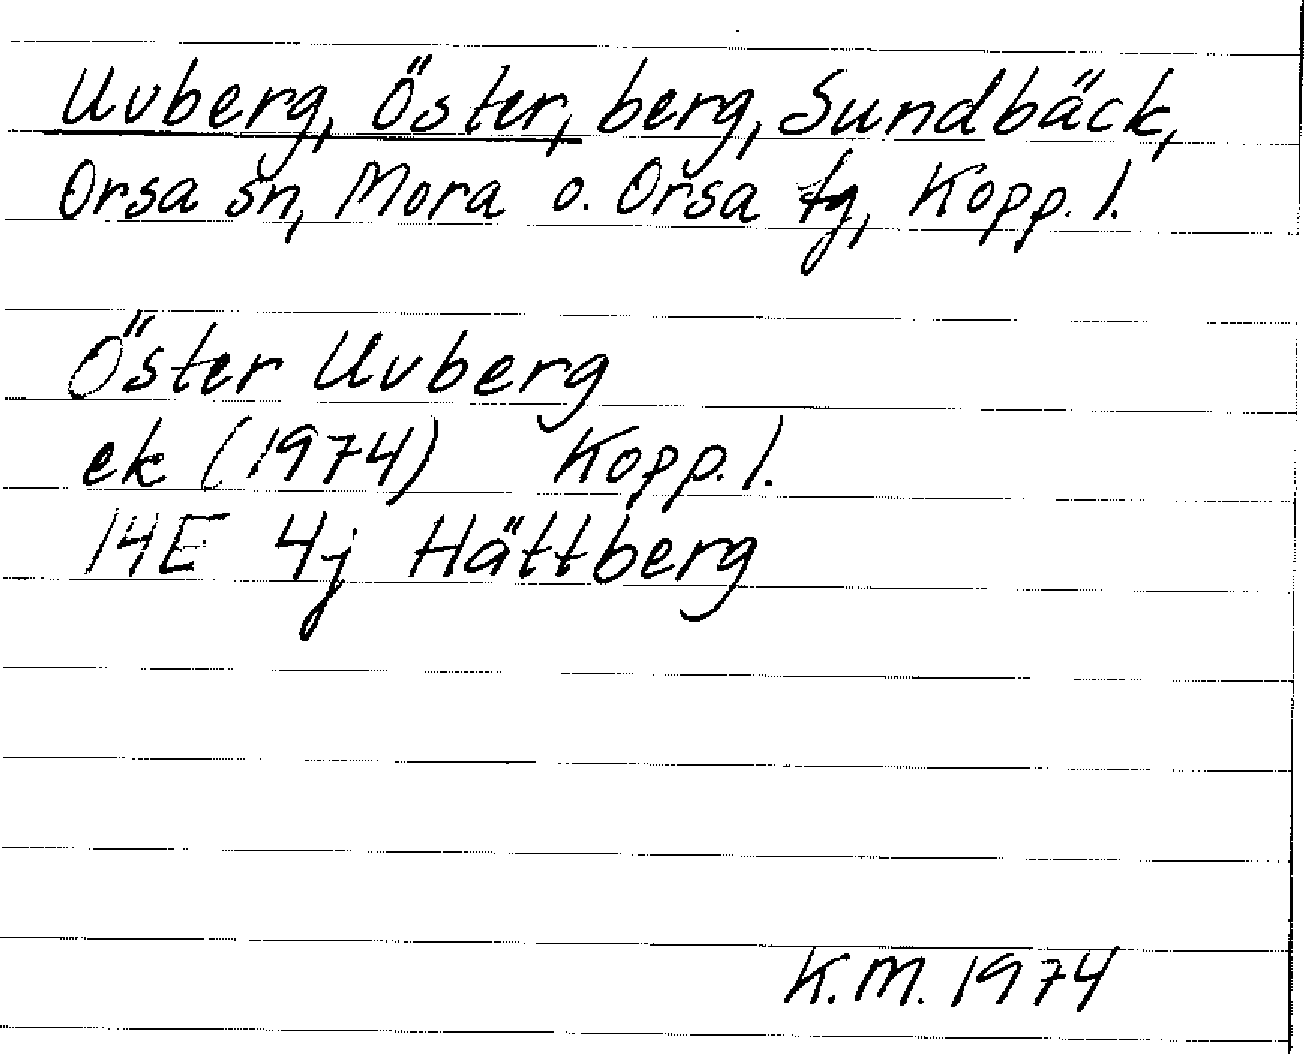 Uvberg, Öster, berg, Sundbäck,
Orsa sn, Mora o. Orsa tg, Kopp. l.
Öster Uvberg
ek (1974) Kopp. l.
14E 4j Hättberg
K.M. 1974